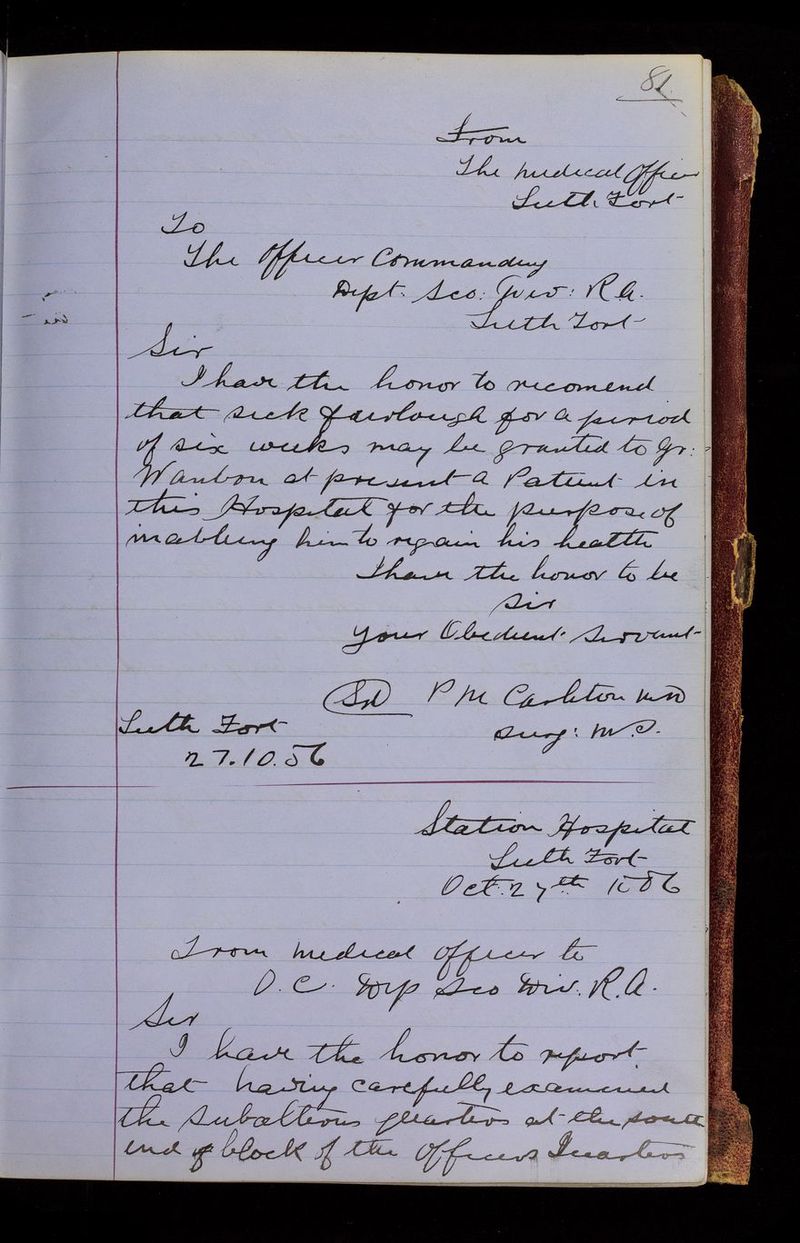 81
From
The Medical Officer
Leith Fort
To
The Officer Commanding
Depôt. Sco: Div: R.A.
Leith Fort
Sir
I have the honor to recomend
that sick furlough for a period
of six weeks may be granted to Gr:
at present a Patient in
this Hospital for the purpose of
inabling him to regain his health
I have the honor to be
Sir
your Obedient Servant
(Sd) P M Carleton MD
Surg: M.S.
Leith Fort
27.10.86
Station Hospital
Leith Fort
Oct. 27th 1886
From Medical Officer to
O.C. Dep Sco Div. R.A.
Sir
I have the honor to report
that having carefully examined
the Subalterns quarters at the south
end of block of the Officers Quarters